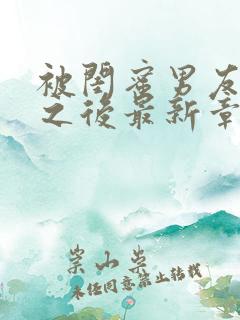 被閨蜜男友
之後最新章
柴小柴
未经同意禁止转载